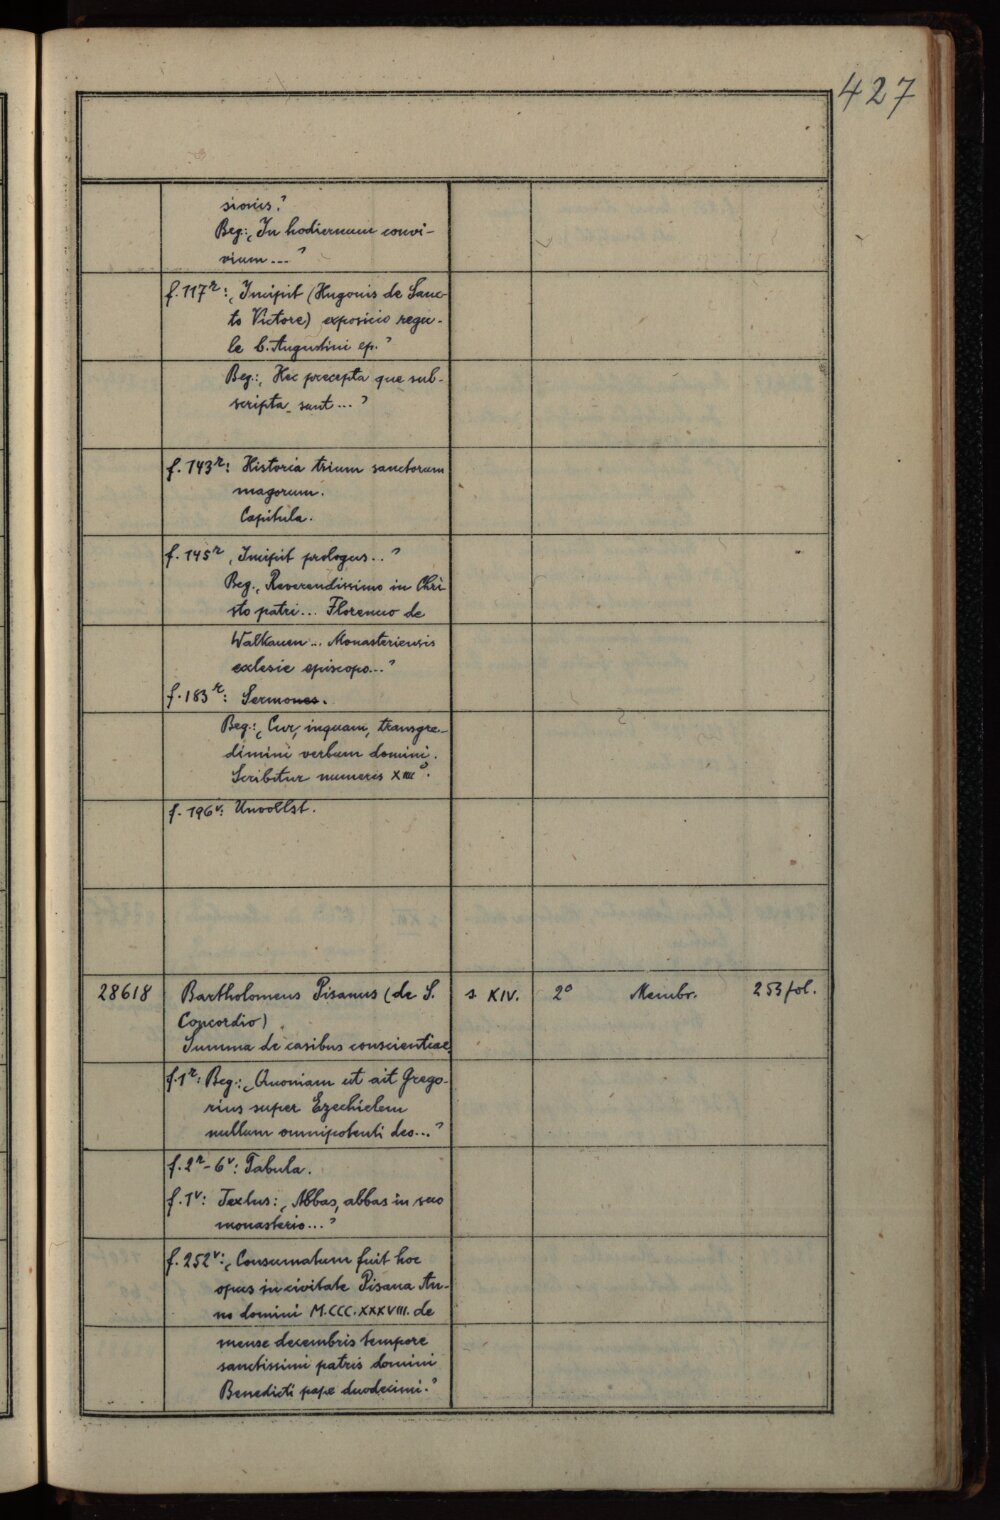 427
sionis.“
Beg.: „In hodiernum convi-
vium ... “
f. 117r: „Incipit (Hugonis de Sanc-
to Victore) exposicio regu-
le b. Augustini ep.“
Beg.: „Hec precepta que sub-
scripta sunt ... “
f. 143r: Historia trium sanctorum
magorum.
Capitula.
f. 145r „Incipit prologus .. “
Beg. „Reverendissimo in Chri-
sto patri ... Florencio de
Walkauen ... Monasteriensis
ecclesie episcopo ... “
f. 183r: Sermones.
Beg.: „Cur, inquam, transgre-
dimini verbum domini.
Scribitur numeris XIIIIo.
f. 196v: Unvollst.
28618 Bartholomeus Pisanus (de S. s XIV. 2o Membr. 253 fol.
Concordio)
Summa de casibus conscientiae
f. 1r: Beg.: „Quoniam ut ait Grego-
rius super Ezechielem
nullum omnipotenti deo ... “
f. 2r - 6v: Tabula.
f. 7v: Textus: „Abbas, abbas in suo
monasterio ... “
f. 252v: „Consumatum fuit hoc
opus in civitate Pisana An-
no domini M.CCC.XXXVIII. de
mense decembris tempore
sanctissimi patris domini
Benedicti pape duodecimi.“